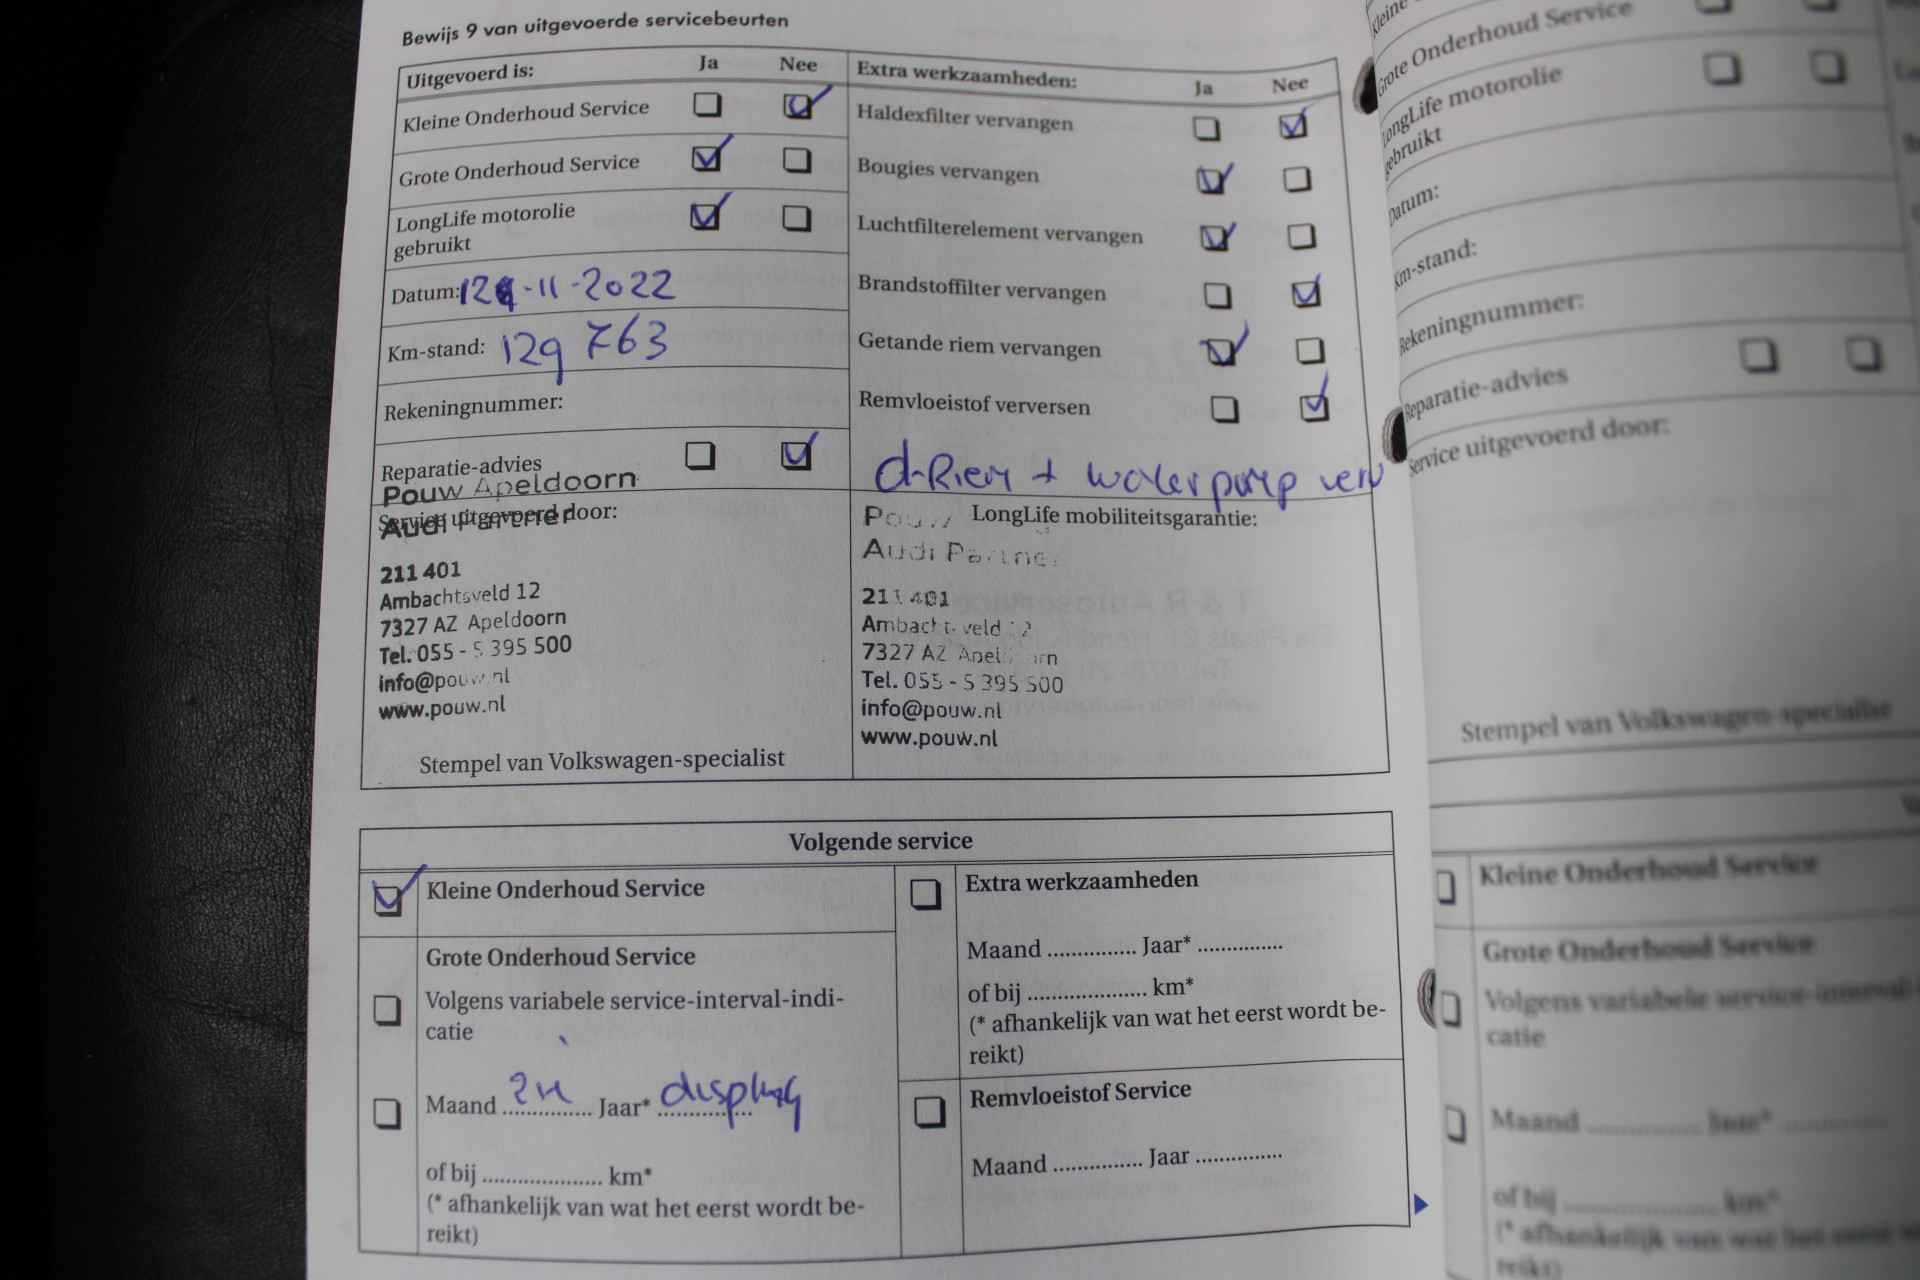 Bewijs 9 van uitgevoerde servicebeurten
Uitgevoerd is: Ja Nee
Kleine Onderhoud Service
Grote Onderhoud Service
LongLife motorolie
gebruikt
Datum: -11-2022
Km-stand: 129 763
Rekeningnummer:
Reparatie-advies
Pouw Apeldoorn
Audi Partner
Service uitgevoerd door:
211 401
Ambachtsveld 12
7327 AZ Apeldoorn
Tel. 055 - 5 395 500
info@pouw.nl
www.pouw.nl
Stempel van Volkswagen-specialist
Extra werkzaamheden: Ja Nee
Haldexfilter vervangen
Bougies vervangen
Luchtfilterelement vervangen
Brandstoffilter vervangen
Getande riem vervangen
Remvloeistof verversen
d-Riem + waterpomp verv
Pouw LongLife mobiliteitsgarantie:
Audi Partner
211 401
Ambachtsveld 12
7327 AZ Apeldoorn
Tel. 055 - 5 395 500
info@pouw.nl
www.pouw.nl
Volgende service
Kleine Onderhoud Service
Grote Onderhoud Service
Volgens variabele service-interval-indi-
catie
Maand .............. Jaar* display
of bij .................... km*
(* afhankelijk van wat het eerst wordt be-
reikt)
Extra werkzaamheden
Maand ............... Jaar* ..............
of bij .................... km*
(* afhankelijk van wat het eerst wordt be-
reikt)
Remvloeistof Service
Maand ............... Jaar ..............
Kleine
Grote Onderhoud Service
LongLife motorolie
gebruikt
Datum:
Km-stand:
Rekeningnummer:
Reparatie-advies
Service uitgevoerd door:
Stempel van Volkswagen-specialist
Kleine Onderhoud Service
Grote Onderhoud Service
Volgens variabele service-interval-
catie
Maand .............. Jaar* ..............
of bij .................... km*
(* afhankelijk van wat het eerst
reikt)